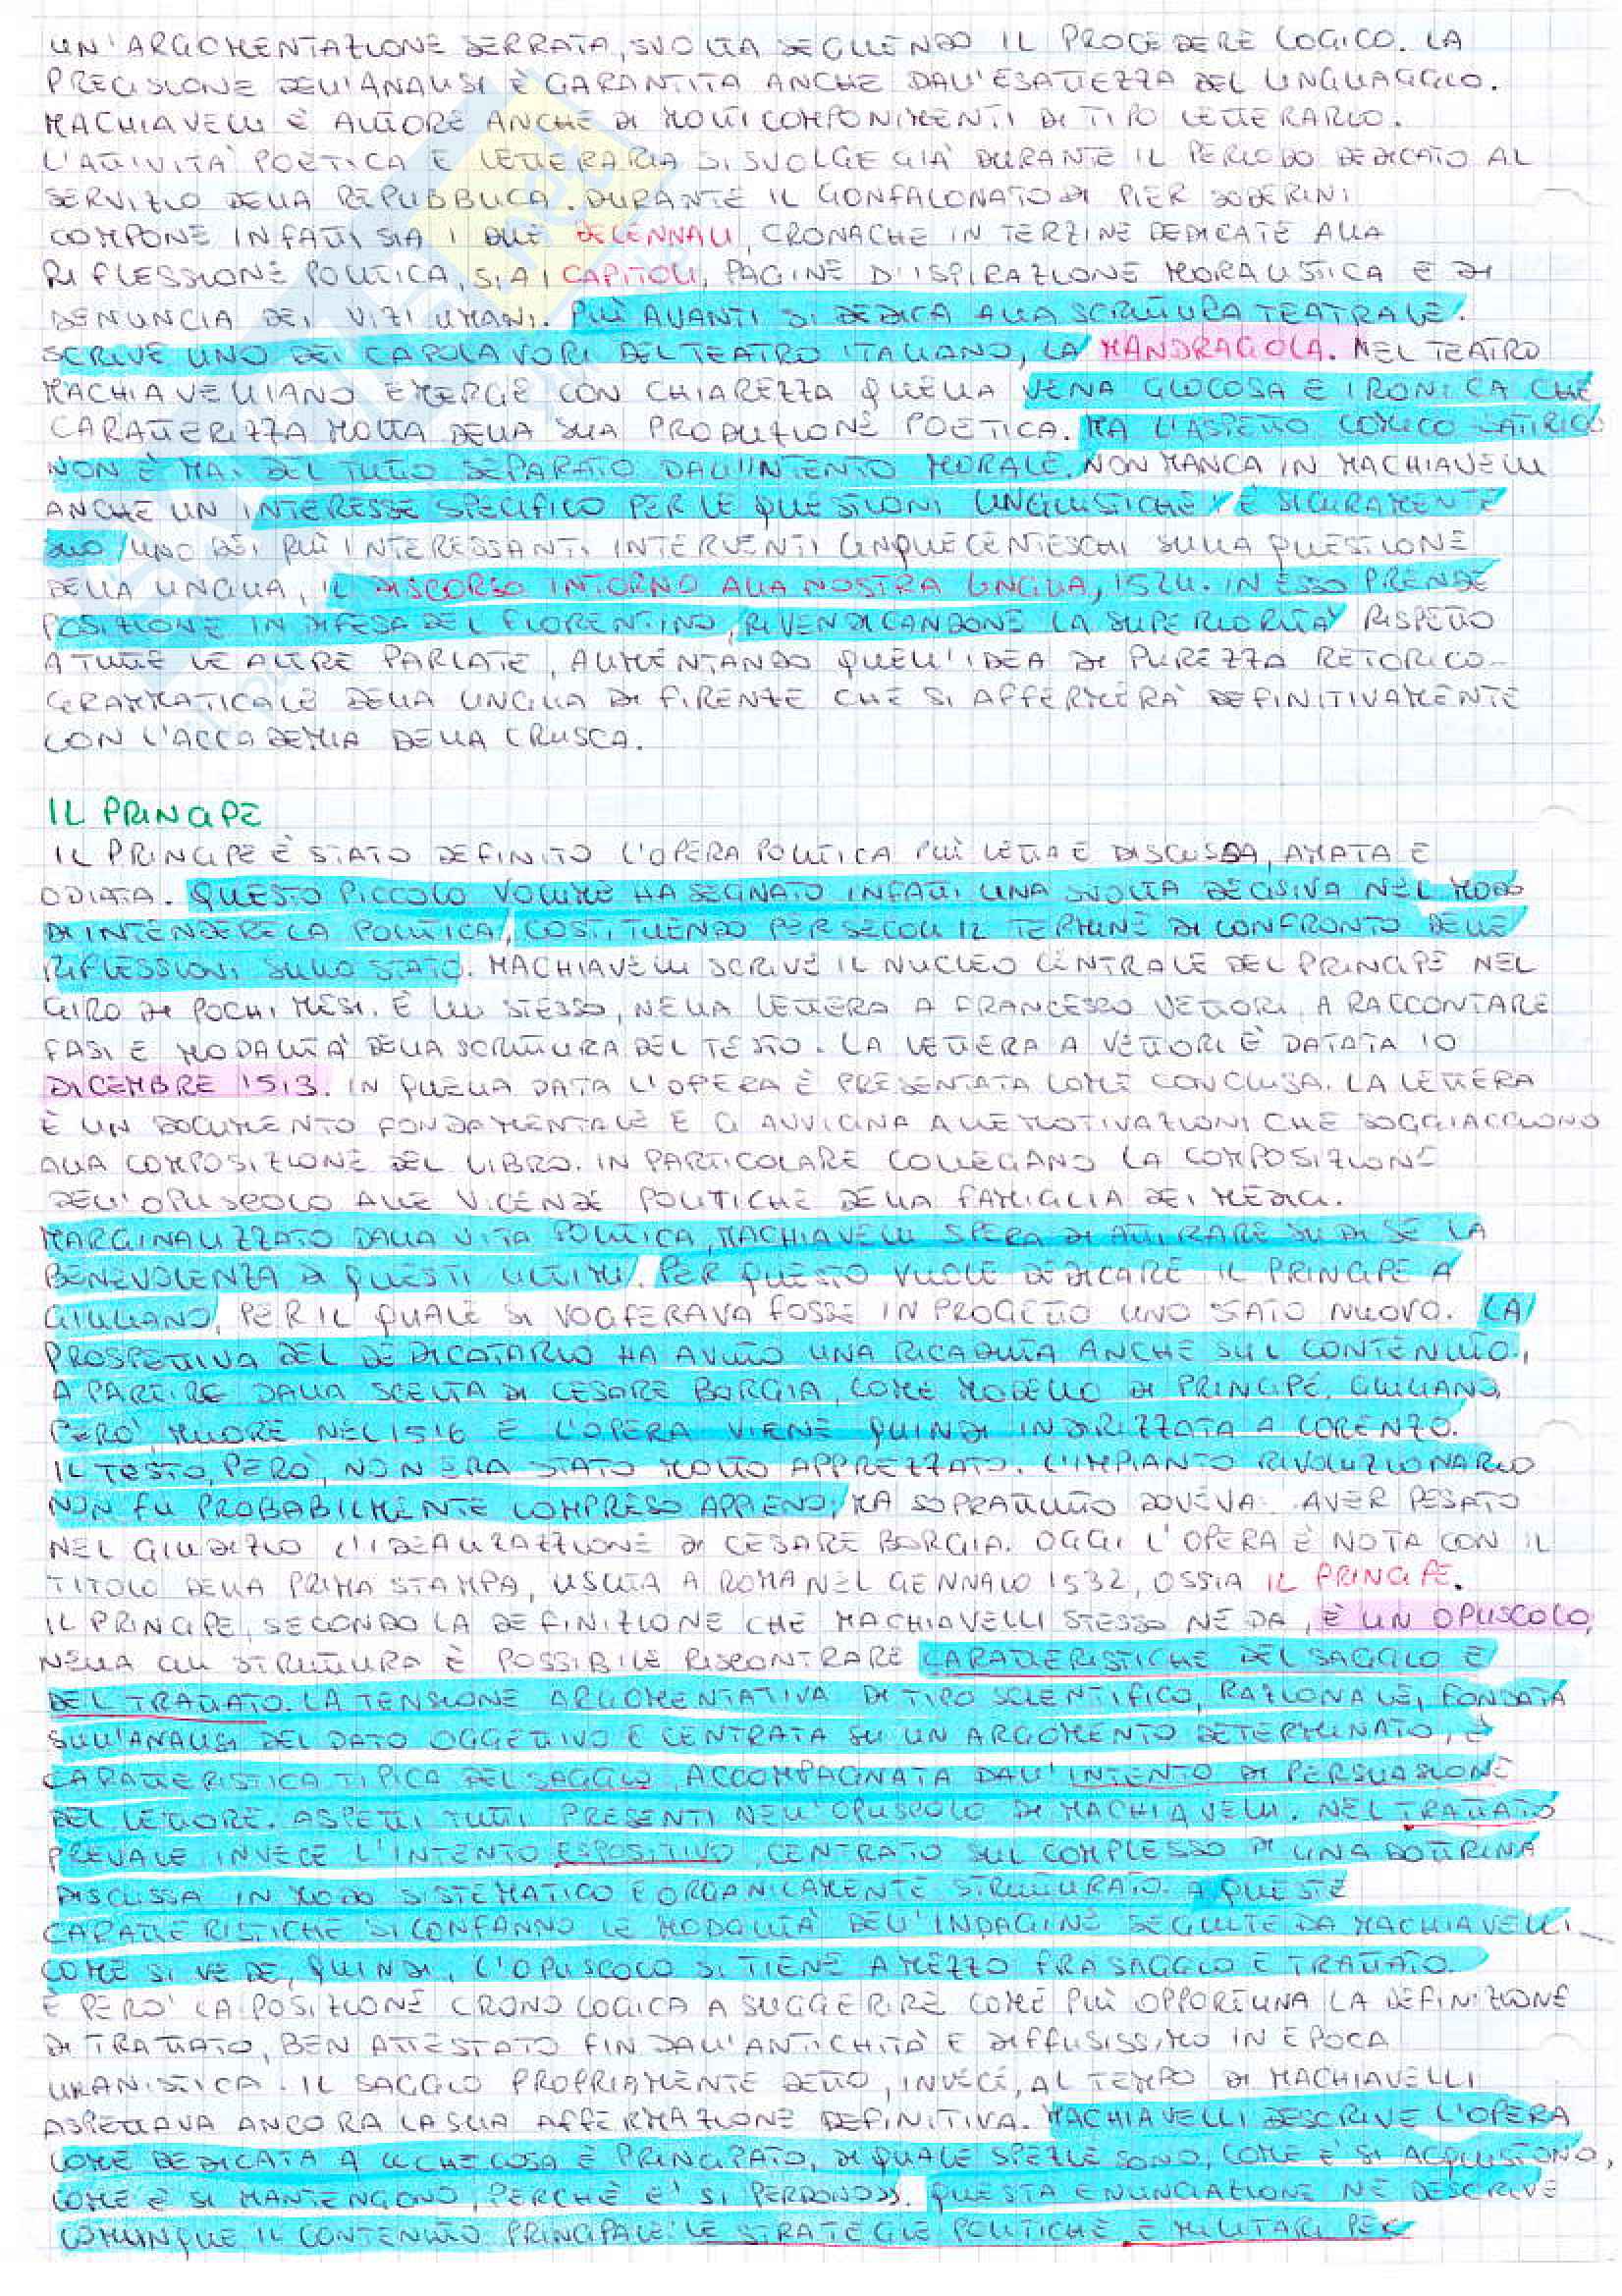 UN'ARGOMENTAZIONE SERRATA, SVOLTA SEGUENDO IL PROCEDERE LOGICO. LA
PRECISIONE DELL'ANALISI È GARANTITA ANCHE DALL'ESATTEZZA DEL LINGUAGGIO.
MACHIAVELLI È AUTORE ANCHE DI MOLTI COMPONIMENTI DI TIPO LETTERARIO.
L'ATTIVITÀ POETICA E LETTERARIA SI SVOLGE GIÀ DURANTE IL PERIODO DEDICATO AL
SERVIZIO DELLA REPUBBLICA. DURANTE IL GONFALONATO DI PIER SODERINI
COMPONE INFATTI SIA I DUE DECENNALI, CRONACHE IN TERZINE DEDICATE ALLA
RIFLESSIONE POLITICA, SIA I CAPITOLI, PAGINE D'ISPIRAZIONE MORALISTICA E DI
DENUNCIA DEI VIZI UMANI. PIÙ AVANTI SI DEDICA ALLA SCRITTURA TEATRALE.
SCRIVE UNO DEI CAPOLAVORI DEL TEATRO ITALIANO, LA MANDRAGOLA. NEL TEATRO
MACHIAVELLIANO EMERGE CON CHIAREZZA QUELLA VENA GIOCOSA E IRONICA CHE
CARATTERIZZA MOLTA DELLA SUA PRODUZIONE POETICA. MA L'ASPETTO COMICO SATIRICO
NON È MAI DEL TUTTO SEPARATO DALL'INTENTO MORALE. NON MANCA IN MACHIAVELLI
ANCHE UN INTERESSE SPECIFICO PER LE QUESTIONI LINGUISTICHE. È SICURAMENTE
SUO UNO DEI PIÙ INTERESSANTI INTERVENTI CINQUECENTESCHI SULLA QUESTIONE
DELLA LINGUA, IL DISCORSO INTORNO ALLA NOSTRA LINGUA, 1524. IN ESSO PRENDE
POSIZIONE IN DIFESA DEL FIORENTINO, RIVENDICANDONE LA SUPERIORITÀ RISPETTO
A TUTTE LE ALTRE PARLATE, AUMENTANDO QUELL'IDEA DI PUREZZA RETORICO-
GRAMMATICALE DELLA LINGUA DI FIRENZE CHE SI AFFERMERÀ DEFINITIVAMENTE
CON L'ACCADEMIA DELLA CRUSCA.
IL PRINCIPE
IL PRINCIPE È STATO DEFINITO L'OPERA POLITICA PIÙ LETTA E DISCUSSA, AMATA E
ODIATA. QUESTO PICCOLO VOLUME HA SEGNATO INFATTI UNA SVOLTA DECISIVA NEL MODO
DI INTENDERE LA POLITICA, COSTITUENDO PER SECOLI IL TERMINE DI CONFRONTO DELLE
RIFLESSIONI SULLO STATO. MACHIAVELLI SCRIVE IL NUCLEO CENTRALE DEL PRINCIPE NEL
GIRO DI POCHI MESI. È LUI STESSO, NELLA LETTERA A FRANCESCO VETTORI, A RACCONTARE
FASI E MODALITÀ DELLA SCRITTURA DEL TESTO. LA LETTERA A VETTORI È DATATA 10
DICEMBRE 1513. IN QUELLA DATA L'OPERA È PRESENTATA COME CONCLUSA. LA LETTERA
È UN DOCUMENTO FONDAMENTALE E CI AVVICINA ALLE MOTIVAZIONI CHE SOGGIACCIONO
ALLA COMPOSIZIONE DEL LIBRO. IN PARTICOLARE COLLEGANO LA COMPOSIZIONE
DELL'OPUSCOLO ALLE VICENDE POLITICHE DELLA FAMIGLIA DEI MEDICI.
MARGINALIZZATO DALLA VITA POLITICA, MACHIAVELLI SPERA DI ATTIRARE SU DI SÉ LA
BENEVOLENZA DI QUESTI ULTIMI. PER QUESTO VUOLE DEDICARE IL PRINCIPE A
GIULIANO, PER IL QUALE SI VOCIFERAVA FOSSE IN PROGETTO UNO STATO NUOVO. LA
PROSPETTIVA DEL DEDICATARIO HA AVUTO UNA RICADUTA ANCHE SUL CONTENUTO,
A PARTIRE DALLA SCELTA DI CESARE BORGIA, COME MODELLO DI PRINCIPE. GIULIANO,
PERÒ, MUORE NEL 1516 E L'OPERA VIENE QUINDI INDIRIZZATA A LORENZO.
IL TESTO, PERÒ, NON ERA STATO MOLTO APPREZZATO. L'IMPIANTO RIVOLUZIONARIO
NON FU PROBABILMENTE COMPRESO APPIENO, MA SOPRATTUTTO DOVEVA AVER PESATO
NEL GIUDIZIO L'IDEALIZZAZIONE DI CESARE BORGIA. OGGI L'OPERA È NOTA CON IL
TITOLO DELLA PRIMA STAMPA, USCITA A ROMA NEL GENNAIO 1532, OSSIA IL PRINCIPE.
IL PRINCIPE, SECONDO LA DEFINIZIONE CHE MACHIAVELLI STESSO NE DA, È UN OPUSCOLO,
NELLA CUI STRUTTURA È POSSIBILE RISCONTRARE CARATTERISTICHE DEL SAGGIO E
DEL TRATTATO. LA TENSIONE ARGOMENTATIVA DI TIPO SCIENTIFICO, RAZIONALE, FONDATA
SULL'ANALISI DEL DATO OGGETTIVO E CENTRATA SU UN ARGOMENTO DETERMINATO, È
CARATTERISTICA TIPICA DEL SAGGIO, ACCOMPAGNATA DALL'INTENTO DI PERSUASIONE
DEL LETTORE. ASPETTI TUTTI PRESENTI NELL'OPUSCOLO DI MACHIAVELLI. NEL TRATTATO
PREVALE INVECE L'INTENTO ESPOSITIVO, CENTRATO SUL COMPLESSO DI UNA DOTTRINA
DISCUSSA IN MODO SISTEMATICO E ORGANICAMENTE STRUTTURATO. A QUESTE
CARATTERISTICHE SI CONFANNO LE MODALITÀ DELL'INDAGINE SEGUITE DA MACHIAVELLI.
COME SI VEDE, QUINDI, L'OPUSCOLO SI TIENE A MEZZO FRA SAGGIO E TRATTATO.
È PERÒ LA POSIZIONE CRONOLOGICA A SUGGERIRE COME PIÙ OPPORTUNA LA DEFINIZIONE
DI TRATTATO, BEN ATTESTATO FIN DALL'ANTICHITÀ E DIFFUSISSIMO IN EPOCA
UMANISTICA. IL SAGGIO PROPRIAMENTE DETTO, INVECE, AL TEMPO DI MACHIAVELLI
ASPETTAVA ANCORA LA SUA AFFERMAZIONE DEFINITIVA. MACHIAVELLI DESCRIVE L'OPERA
COME DEDICATA A «CHE COSA È PRINCIPATO, DI QUALE SPEZIE SONO, COME E' SI ACQUISTONO,
COME E' SI MANTENGONO, PERCHÉ E' SI PERDONO». QUESTA ENUNCIAZIONE NE DESCRIVE
COMUNQUE IL CONTENUTO PRINCIPALE: LE STRATEGIE POLITICHE E MILITARI PER